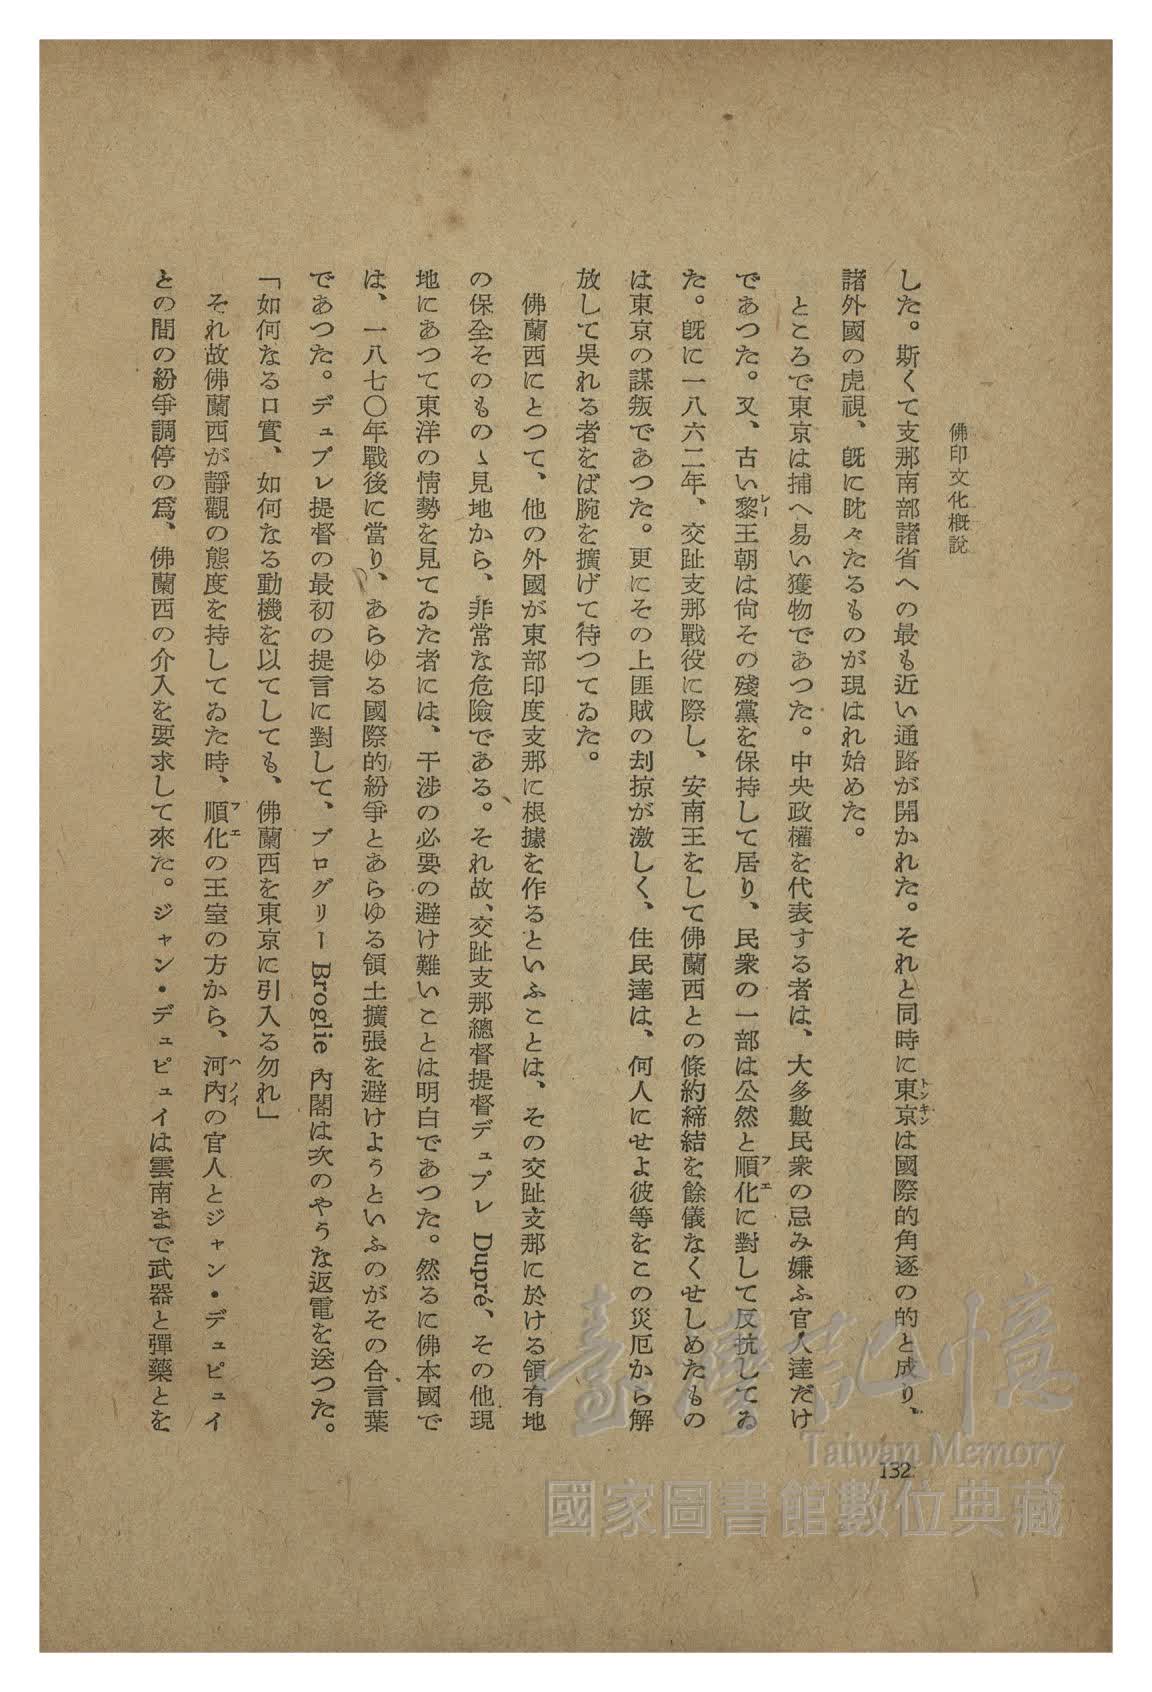 佛印文化概說
した。斯くて支那南部諸省への最も近い通路が開かれた。それと同時に東京は國際的角逐の的と成り、
トンキン
諸外國の虎視、旣に眈々たるものが現はれ始めた。
ところで東京は捕へ易い獲物であつた。中央政權を代表する者は、大多數民衆の忌み嫌ふ官人達だけ
であつた。又、古い黎王朝は尙その殘黨を保持して居り、民衆の一部は公然と順化に對して反抗してゐ
レー
フエ
た。旣に一八六二年、交趾支那戰役に際し、安南王をして佛蘭西との條約締結を餘儀なくせしめたもの
は東京の謀叛であつた。更にその上匪賊の刦掠が激しく、住民達は、何人にせよ彼等をこの災厄から解
放して吳れる者をば腕を擴げて待つてゐた。
佛蘭西にとつて、他の外國が東部印度支那に根據を作るといふことは、その交趾支那に於ける領有地
の保全そのものゝ見地から、非常な危險である。それ故、交趾支那總督提督デュプレ Dupré、その他現
地にあつて東洋の情勢を見てゐた者には、干涉の必要の避け難いことは明白であつた。然るに佛本國で
は、一八七〇年戰後に當り、あらゆる國際的紛爭とあらゆる領土擴張を避けようといふのがその合言葉
であつた。デュプレ提督の最初の提言に對して、ブログリー Broglie 內閣は次のやうな返電を送つた。
「如何なる口實、如何なる動機を以てしても、佛蘭西を東京に引入る勿れ」
それ故佛蘭西が靜觀の態度を持してゐた時、順化の王室の方から、河內の官人とジャン・デュピュイ
フエ
ハノイ
との間の紛爭調停の爲、佛蘭西の介入を要求して來た。ジャン・デュピュイは雲南まで武器と彈藥とを
132
臺灣記憶
Taiwan Memory
國家圖書館數位典藏